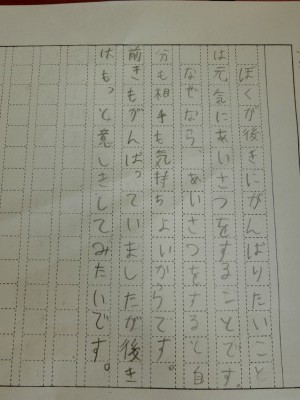 ぼくが後きにがんばりたいこと
は元気にあいさつをすることです。
なぜなら、あいさつをすると自
分も相手も気持ちよいからです。
前きもがんばっていましたが後き
はもっと意しきしてみたいです。